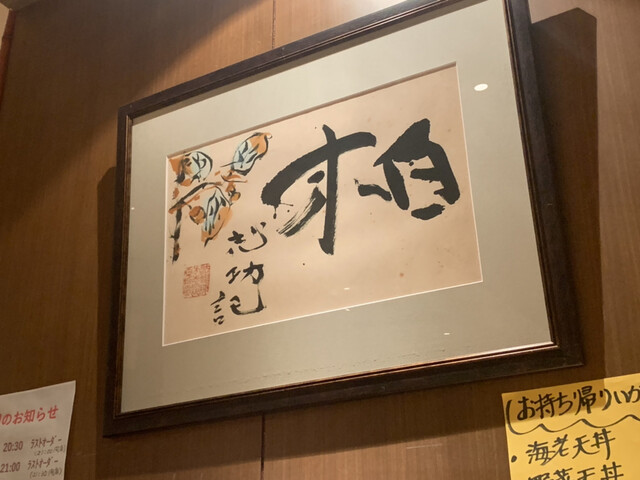 柏
志功記
のお知らせ
20:30 ラストオーダー
21:00 ラストオーダー
(お持ち帰りいか
・海老天丼
・野菜天丼